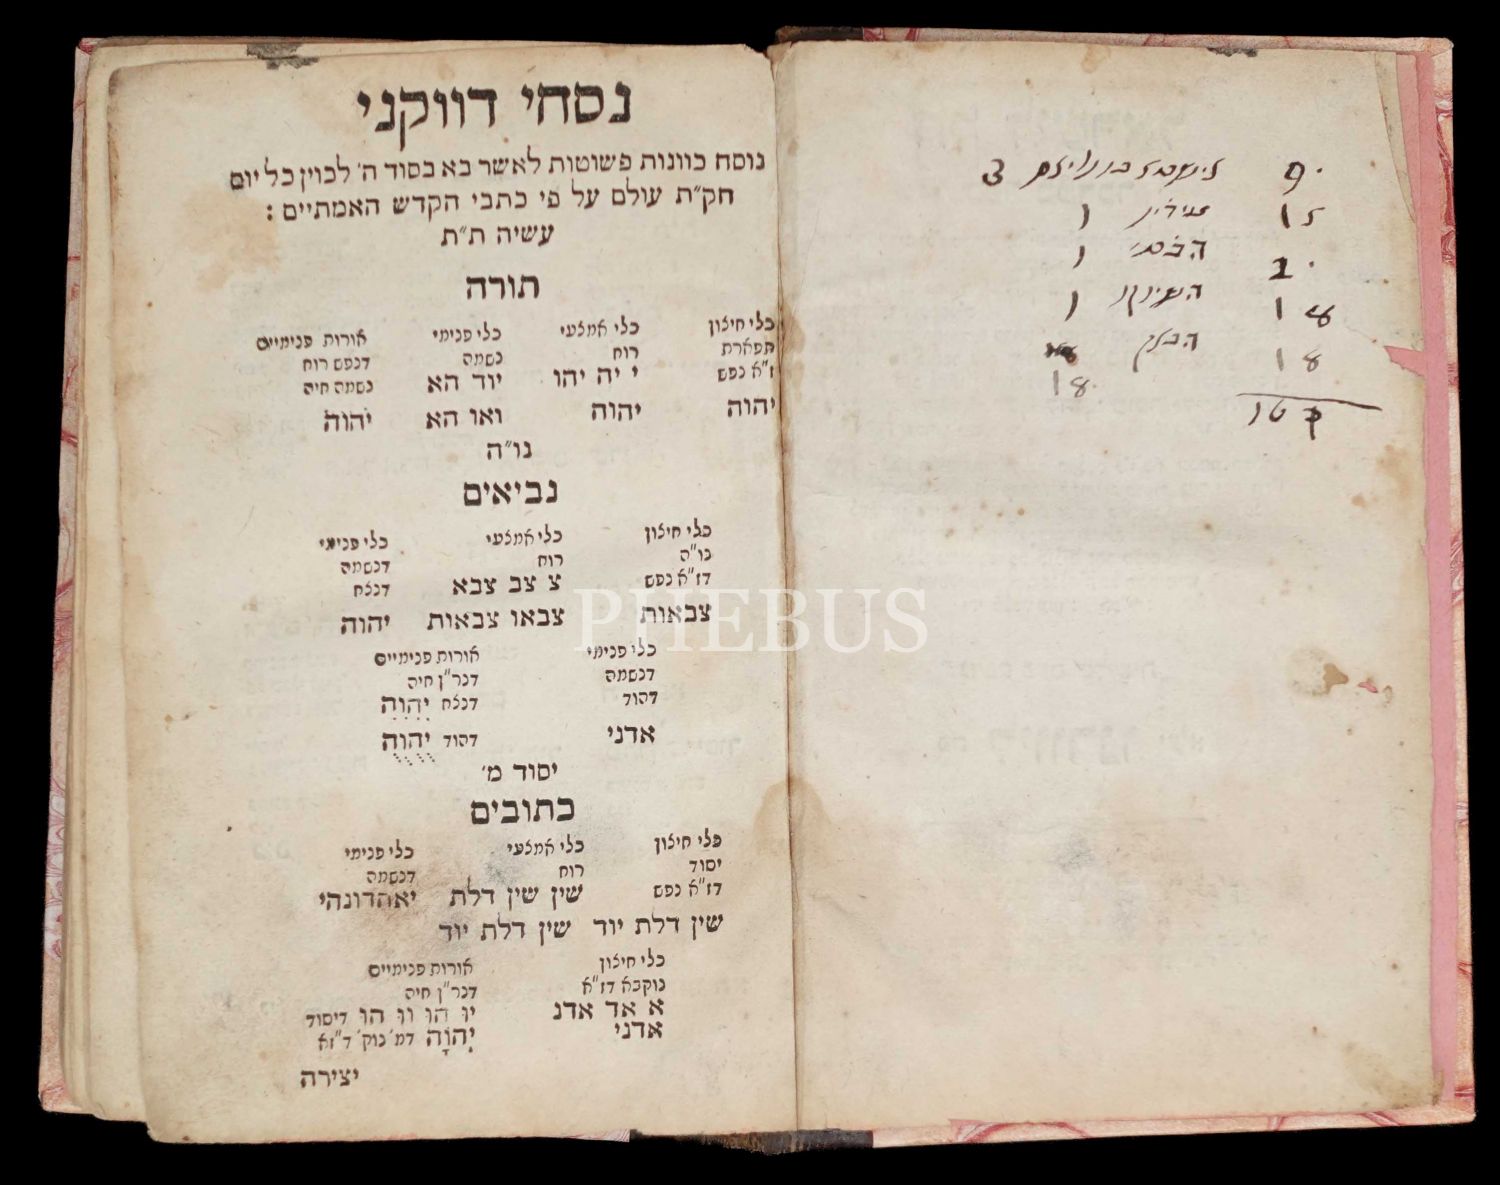 נסחי דווקני
נוסח כוונות פשוטות לאשר בא בסוד ה׳ לכוין כל יום
חק״ת עולם על פי כתבי הקדש האמתיים :
עשיה ת״ת
תורה
כלי חיצון כלי אמצעי כלי פנימי אורות פנימיים
תפארת רוח נשמה דנפש רוח
ז״א נפש י יה יהו יוד הא נשמה חיה
יהוה יהוה ואו הא יהוה
נו״ה
נביאים
כלי חיצון כלי אמצעי כלי פנימי
נו״ה רוח דנשמה
דז״א נפש צ צב צבא דנצח
צבאות צבאו צבאות יהוה
כלי פנימי אורות פנימיים
דנשמה דנר״ן חיה
דהוד דנצח יהוה
אדני דהוד יהוה
יסוד מ׳
כתובים
כלי חיצון כלי אמצעי כלי פנימי
יסוד רוח דנשמה
דז״א נפש שין שין דלת יאהדונהי
שין דלת יוד שין דלת יוד
כלי חיצון אורות פנימיים
נוקבא דז״א דנר״ן חיה
א אד אדנ יו הו וו הו דיסוד
אדני יהוה דמ׳ נוק׳ ד״זא
יצירה
PHEBUS
3
18
18
18